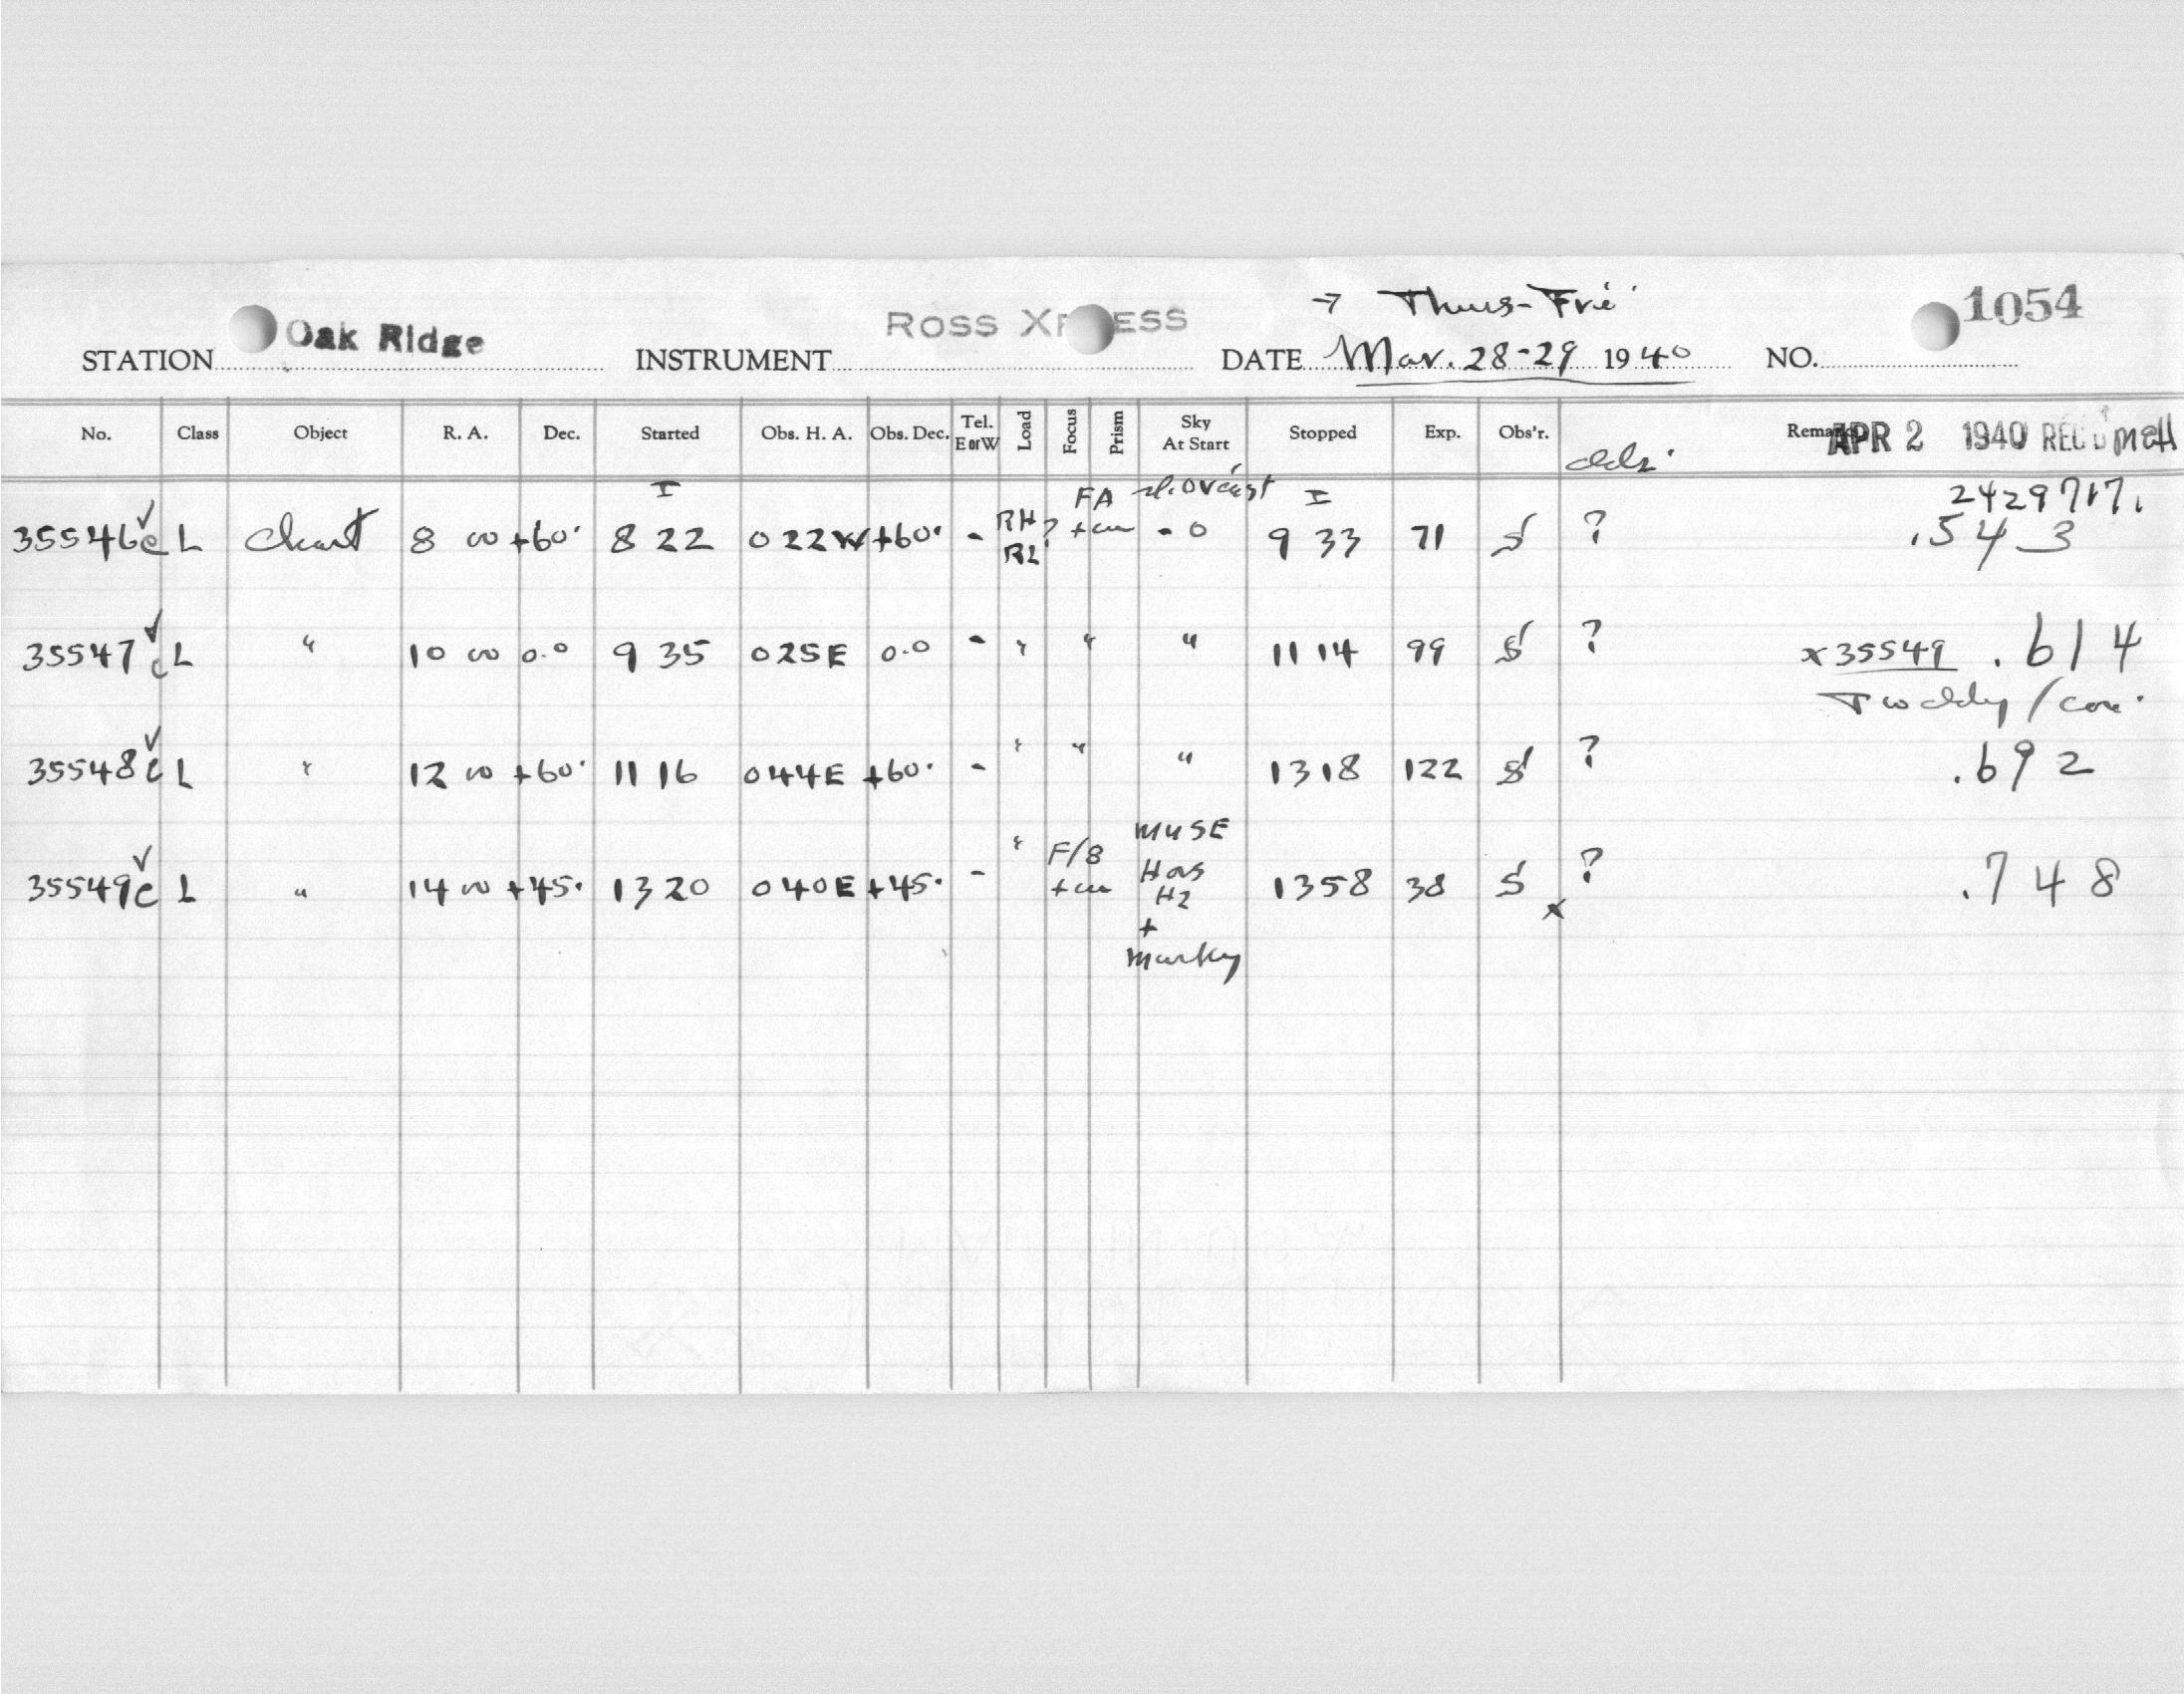 → Thurs-Fri
1054
STATION Oak Ridge INSTRUMENT ROSS X ESS DATE Mar. 28-29 1940 NO.
No. Class Object R. A. Dec. Started Obs. H. A. Obs. Dec. Tel. E or W Load Focus Prism Sky At Start Stopped Exp. Obs'r. Remarks APR 2 1940 REC'D MCH
I FA sl. overcast I 2429717.
35546c ✓ L Chart 8 00 +60° 8 22 0 22W +60° - RH RL ? +cm - 0 9 33 71 S ? .543
35547c ✓ L " 10 00 0.0 9 35 0 25E 0.0 - " " " 11 14 99 S ? x 35549 .614
35548c ✓ L " 12 00 +60° 11 16 0 44E +60° - " " " 13 18 122 S ? .692
MUSE
35549c ✓ L " 14 00 +45° 13 20 0 40E +45° - " F/8 +cm Has H2 13 58 38 S x ? .748
+
murky